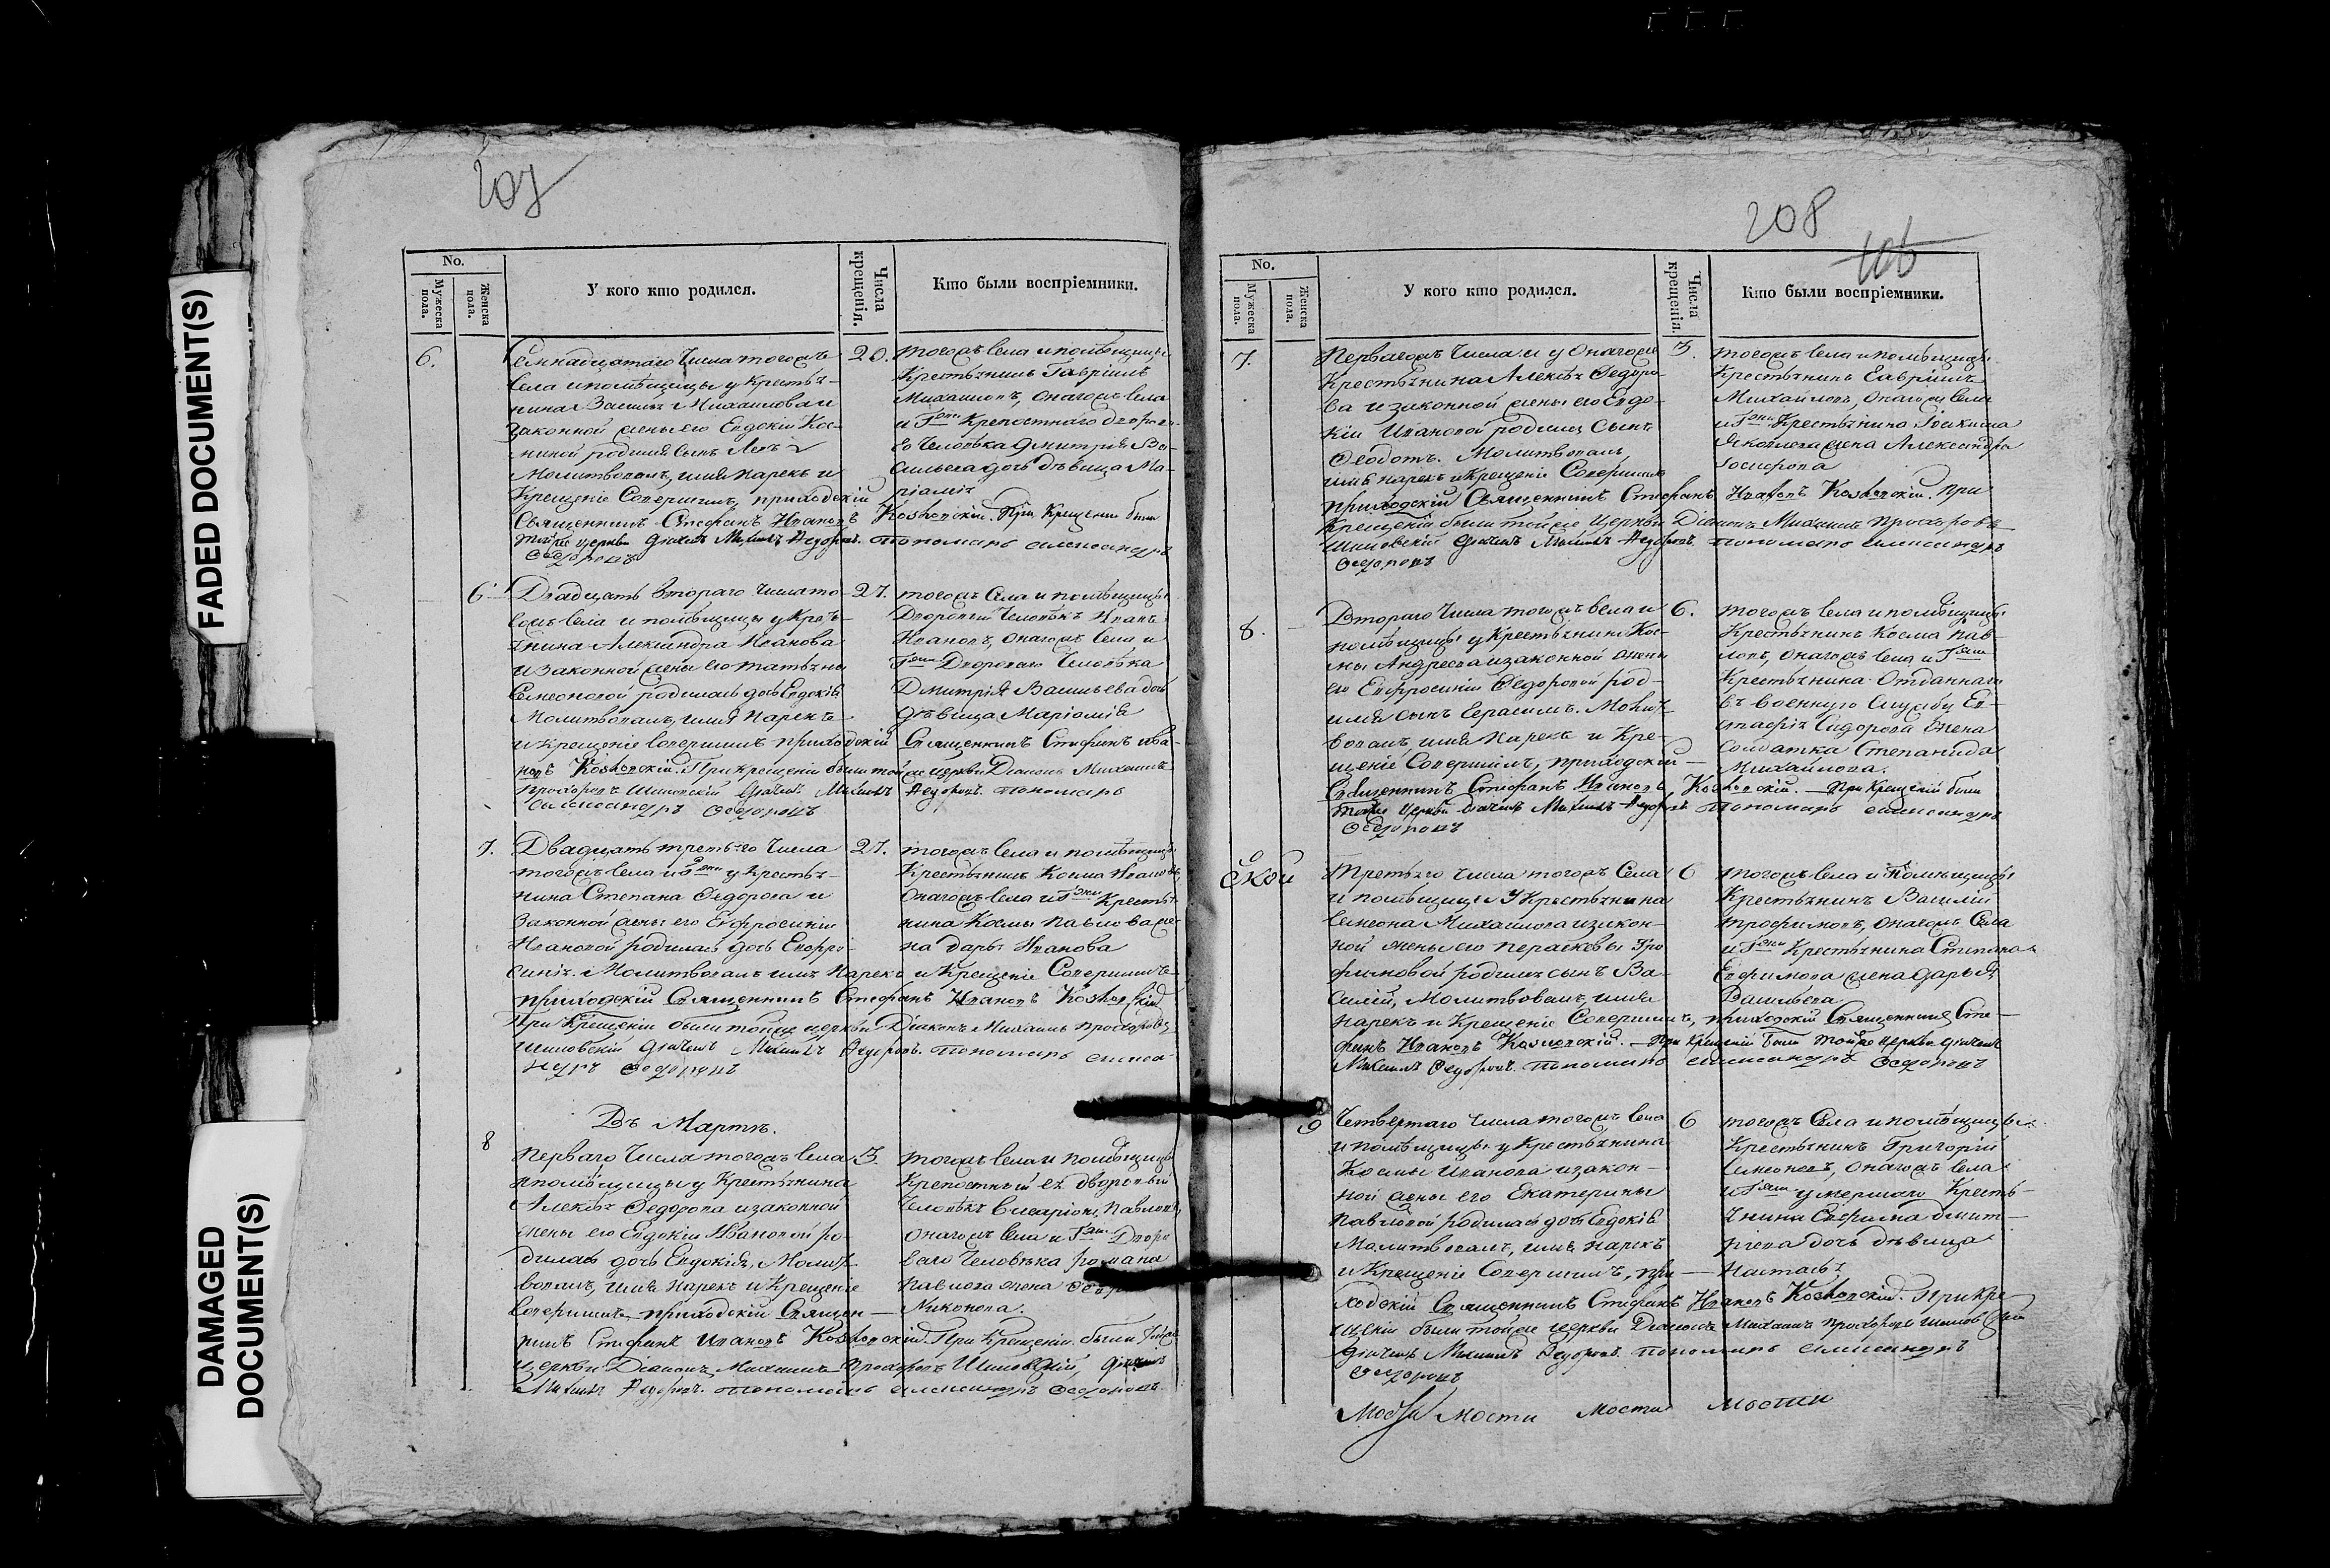 FADED DOCUMENT(S)
DAMAGED
DOCUMENT(S)
207
No.
Мужеска пола.
Женска пола.
У кого кто родился.
Числа крещенія.
Кто были воспріемники.
6.
Семнадцатаго Числа тогожъ
села и помѣщицы у Крестья-
нина Михаилова и
законной жены его Евдокіи Кос-
миной родился сынъ
Молитвовалъ, имя нарекъ и
Крещеніе Совершилъ, приходскій
Священникъ Стефанъ Ивановъ Козловскій. При Крещеніи были
тойже церкви Дьячекъ Михаилъ Федоровъ. пономарь Александръ
Федоровъ
20.
тогожъ села и помѣщицы
Крестьянинъ Гавріилъ
Михаиловъ, онагожъ села
и Крепостнаго дворова-
го Человѣка Дмитрія Ва-
сильева дочь дѣвица Ма-
ріамія
6
Двадцать втораго Числа то-
гожъ села и помѣщицы у Кресть-
янина Александра Иванова
и законной жены его Татьяны
Симеоновой родилась дочь Евдокія
Молитвовалъ, имя Нарекъ
и крещеніе совершилъ приходскій Священникъ Стефанъ Ива-
новъ Козловскій. При крещеніи были тойже церкви Діаконъ Михаилъ
Прохоровъ Дьячекъ Михаилъ Федоровъ пономарь
Александръ Федоровъ
27.
тогожъ села и помѣщицы
Дворовый Человѣкъ Иванъ
Ивановъ, онагожъ села и
Двороваго Человѣка
Дмитрія Васильева дочь
дѣвица Маріамія
7.
Двадцать третьяго Числа
тогожъ села и у Крестья-
нина Степана Федорова и
законной жены его Евфросиніи
Ивановой родилась дочь Евфро-
синія. Молитвовалъ имя Нарекъ и Крещеніе Совершилъ
приходскій Священникъ Стефанъ Ивановъ Козловскій
При Крещеніи были тойже церкви Діаконъ Михаилъ Прохоровъ
Дьячекъ Михаилъ Федоровъ. пономарь Алекса-
ндръ Федоровъ
27.
тогожъ села и помѣщицы
Крестьянинъ Косма Ивановъ
онагожъ села и Крестья-
нина Космы Павлова же-
на Дарья Иванова
Въ Мартѣ.
8
Перваго Числа тогожъ села
и помѣщицы у Крестьянина
Алексѣя Федорова и законной
жены его Евдокіи Ивановой ро-
дилась дочь Евдокія, Молит-
вовалъ, имя нарекъ и Крещеніе
Совершилъ приходскій Священ-
никъ Стефанъ Ивановъ Козловскій. При Крещеніи были тойже
церкви Діаконъ Михаилъ Прохоровъ Дьячекъ
Михаилъ Федоровъ. пономарь Александръ Федоровъ.
3.
тогожъ села и помѣщицы
Крепостный её дворовый
Человѣкъ Павловъ
онагожъ села и Дворо-
ваго Человѣка Романа
Павлова жена
Никонова.
208
106
No.
Мужеска пола.
Женска пола.
У кого кто родился.
Числа крещенія.
Кто были воспріемники.
7.
Перваго Числа и у онагоже
Крестьянина Алексѣя Федоро-
ва и законной жены его Евдо-
кіи Ивановой родился Сынъ
Феодотъ. Молитвовалъ,
имя нарекъ и Крещеніе Совершилъ
приходскій Священникъ Стефанъ Ивановъ Козловскій. При
Крещеніи были тойже церкви Діаконъ Михаилъ Прохоровъ
Дьячекъ Михаилъ Федоровъ. пономарь Александръ
Федоровъ
3.
тогожъ села и помѣщицы
Крестьянинъ Гавріилъ
Михаиловъ, онагожъ села
и Крестьянина
Яковлева жена Александра
Іосифова
8.
Втораго Числа тогожъ села и
помѣщицы у Крестьянина Кос-
мы Андреева и законной жены
его Евфросиніи Федоровой род-
ился сынъ Герасимъ. Молит-
вовалъ имя Нарекъ и Кре-
щеніе Совершилъ, приходскій
Священникъ Стефанъ Ивановъ Козловскій. При Крещеніи были
тойже Церкви Дьячекъ Михаилъ Федоровъ пономарь Александръ
Федоровъ
6.
тогожъ села и помѣщицы
Крестьянинъ Косма Пав-
ловъ, онагожъ села и
Крестьянина отданнаго
въ военную службу Ев-
стафія Сидорова жена
солдатка Степанида
Михайлова.
Третьяго Числа тогожъ Села
и помѣщицы у Крестьянина
Симеона Михаилова и закон-
ной жены его Параскевы Тро-
фимовой родился сынъ Ва-
силій, Молитвовалъ, имя
нарекъ и Крещеніе Совершилъ, приходскій Священникъ Сте-
фанъ Ивановъ Козловскій. При крещеніи были тойже церкви Дьячекъ
Михаилъ Федоровъ. пономарь Александръ Федоровъ
6
тогожъ села и помѣщицы
Крестьянинъ Василій
Трофимовъ, онагожъ Села
и Крестьянина Степана
Ефимова жена Дарья
Васильева
9
Четвертаго Числа тогожъ села
и помѣщицы у Крестьянина
Космы Иванова и закон-
ной жены его Екатерины
Павловой родилась дочь Евдокія
Молитвовалъ, имя нарекъ
и Крещеніе Совершилъ, при-
ходскій Священникъ Стефанъ Ивановъ Козловскій. При кре-
щеніи были тойже церкви Діаконъ Михаилъ Прохоровъ
Дьячекъ Михаилъ Федоровъ. пономарь Александръ
Федоровъ
6
тогожъ Села и помѣщицы
Крестьянинъ Григорій
Симеоновъ, онагожъ села
и умершаго Кресть-
янина Дмит-
ріева дочь дѣвица
Настасья
Мости Мости Мости